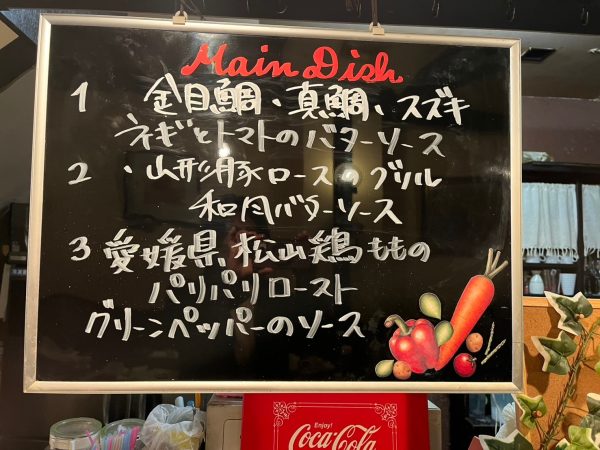 Main Dish
1 金目鯛、真鯛、スズキ
ネギとトマトのバターソース
2 ・山形豚ロースのグリル
和風バターソース
3 愛媛県松山鶏ももの
パリパリロースト
グリーンペッパーのソース
Enjoy!
Coca-Cola